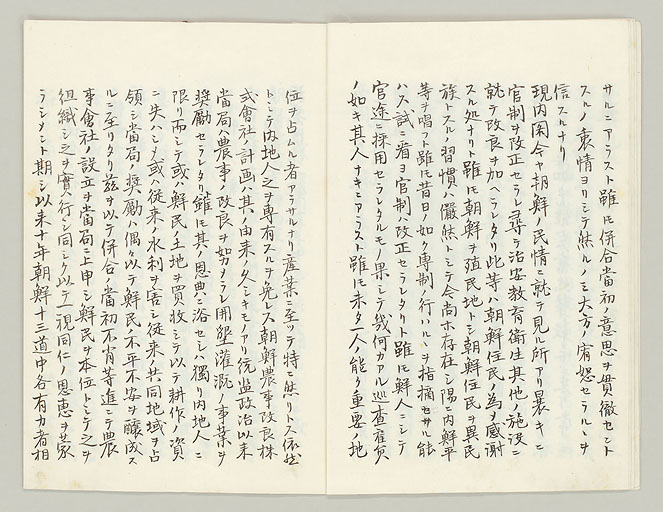 サルニアラスト雖モ併合當初ノ意思ヲ貫徹セント
スルノ衷情ヨリシテ然ルノミ大方ノ宥恕セラルヽヲ
信スルナリ
現内閣今ヤ朝鮮ノ民情ニ就テ見ル所アリ曩キニ
官制ヲ改正セラレ尋テ治安教育衛生其他ノ施設ニ
就テ改良ヲ加ヘラレタリ此等ハ朝鮮住民ノ為メ感謝
スル処ナリト雖モ朝鮮ヲ殖民地トシ朝鮮住民ヲ異民
族トスルノ習慣ハ儼然トシテ今尚ホ存在シ陽ニ内鮮平
等ヲ唱フト雖モ昔日ノ如ク専制ノ行ハルヽヲ指摘セサル能
ハス試ニ看ヨ官制ノ改正セラレタリト雖モ鮮人ニシテ
官途ニ採用セラレタルモノ果シテ幾何カアル巡査雇員
ノ如キ其人ナキニアラスト雖モ未タ一人ノ能ク重要ノ地
位ヲ占ムル者アラサルナリ産業ニ至ッテ特ニ然リトス依然
トシテ内地人之ヲ専有スルヲ免レス朝鮮農事改良株
式會社ノ計画ハ其ノ由来ノ久シキモノアリ統監政治以来
當局ハ農事ノ改良ヲ如メラレ開墾灌漑ノ事業ヲ
奨勵セラレタリ雖モ其ノ恩典ニ浴セシハ獨リ内地人ニ
限リ而シテ或ハ鮮民ノ土地ヲ買收シテ以テ耕作ノ資
ニ失ハシメ或ハ従来ノ水利ヲ害シ従来ノ共同地域ヲ占
領シ當局ノ奨勵ハ偶々以テ鮮民ノ不平不安ヲ醸成ス
ルニ至リタリ茲ヲ以テ併合ノ當初不肖等進ニテ農
事會社ノ設立ヲ當局ニ上申シ鮮民ヲ本位トシテ之ヲ
組織シ之ヲ實行シ同シク以テ一視同仁ノ恩恵ヲ蒙
ラシメント期シ以来十年朝鮮十三道中各有力者相